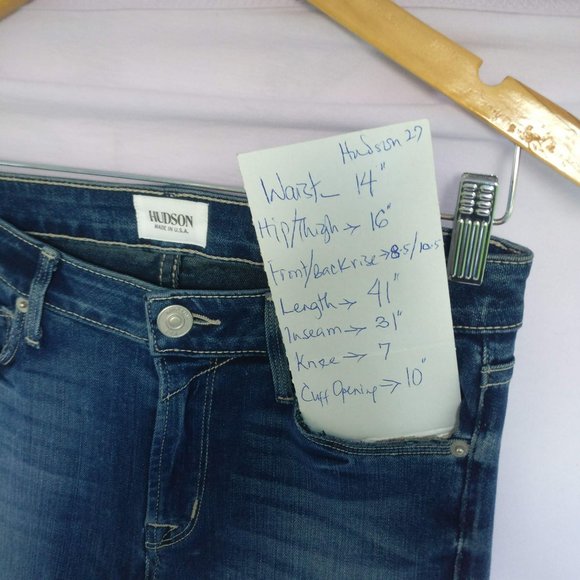 HUDSON
MADE IN U.S.A.
Hudson 27
Waist - 14"
Hip/Thigh → 16"
Front/back rise → 8.5/10.5
Length → 41"
Inseam → 31"
Knee → 7
Cuff Opening → 10"